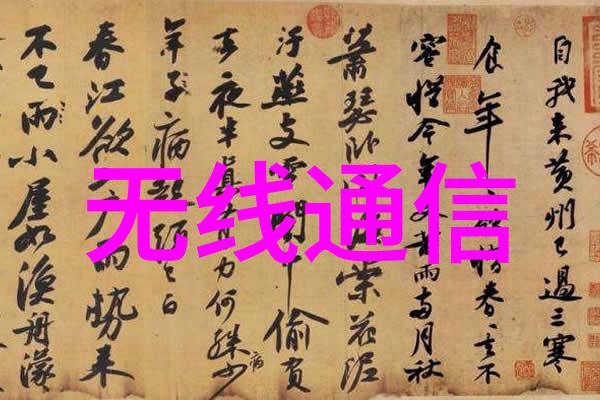 无线通信
自我来黄州已過三寒
食年〻欲惜春〻去不
容惜今年又苦雨兩月秋
蕭瑟卧聞海棠花泥
汙燕支雪闇中偷負
去夜半真有力何殊少病
年子病起頭已白
春江欲入戶雨勢来
不已雨小屋如漁舟濛